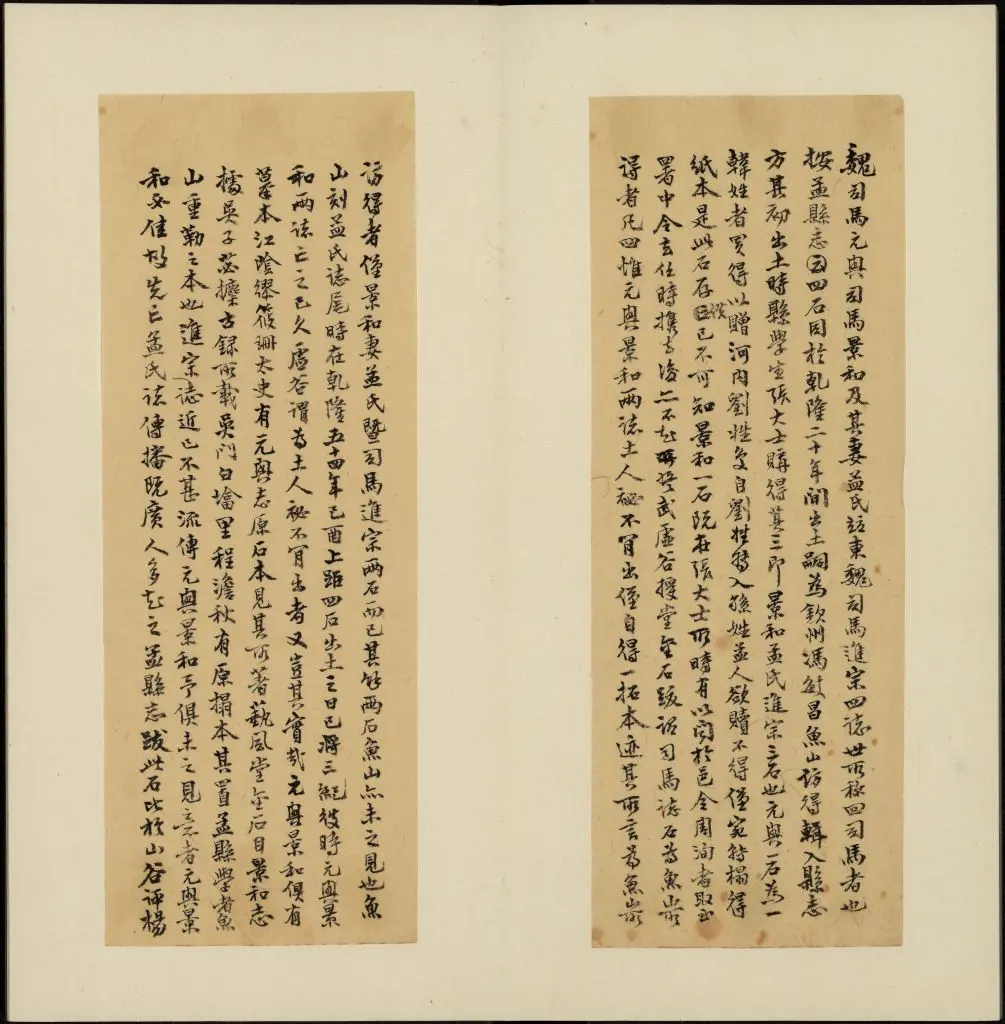 魏司馬元興司馬景和及其妻孟氏訖東魏司馬進宗四誌世所稱四司馬者也
按孟縣志四石同於乾隆二十年間出土嗣為欽州馮敏昌魚山訪得輯入縣志
方其初出土時縣學生張大士購得其三即景和孟氏進宗三石也元興一石為一
韓姓者買得以贈河內劉姓後自劉姓轉入孫姓孟人欲贖不得僅宛轉搨得
紙本是此石存佚已不可知景和一石阮在張大士所時有以聞於邑令周洵者取至
署中令去任時攜去後亦不知所受武虛谷授堂金石跋謂司馬誌石為魚山所
得者凡四惟元興景和兩誌土人祕不肎出僅自得一拓本迹其所言為魚山所
訪得者僅景和妻孟氏暨司馬進宗兩石而已其餘兩石魚山亦未之見也魚
山刻孟氏誌尾時在乾隆五十四年己酉上距四石出土之日已將三紀彼時元興景
和兩誌亡之已久虛谷謂為土人祕不肎出者又豈其實哉元興景和俱有
摹本江陰繆筱珊太史有元興志原石本見其所著藝風堂金石目景和志
據吳子苾攈古錄所載吳門白堬里程澹秋有原搨本其置孟縣學者魚
山重勒之本也進宗誌近已不甚流傳元興景和予俱未之見意者元興景
和文佳故先亡孟氏誌傳播既廣人多知之孟縣志跋此石比於山谷評楊